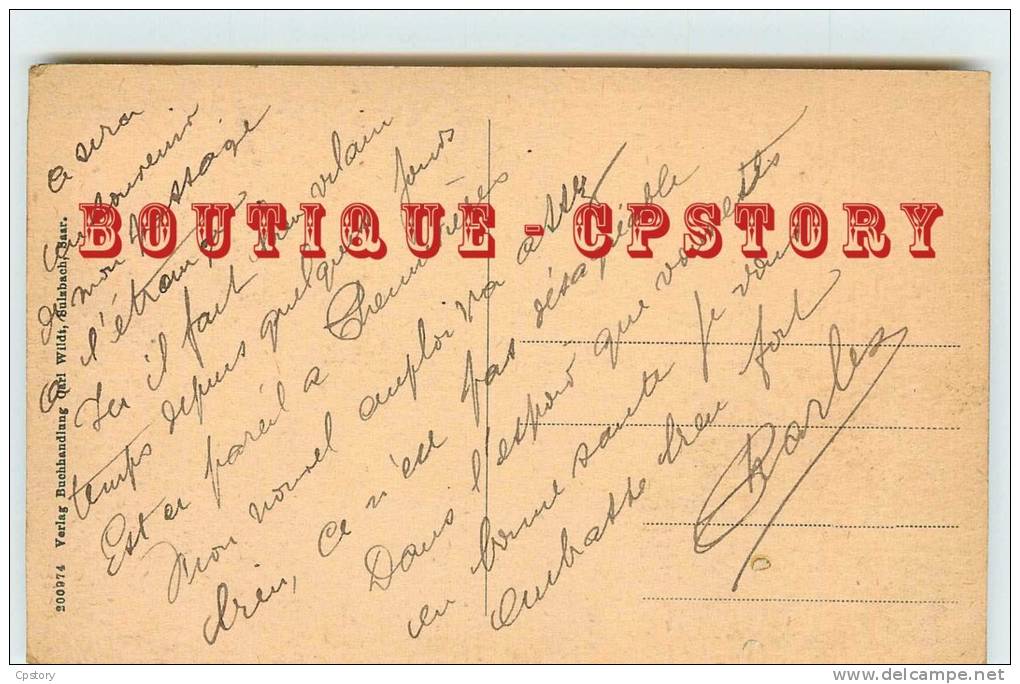 a sera
un souvenir
de mon passage
à l'étranger
Ici il fait bien vilain
temps depuis quelques jours
Est ce pareil a Chennevières
Mon nouvel emploi va assez
bien, ce n'est pas désagréable
Dans l'espoir que vous êtes
en bonne santé je vous
embrasse bien fort
Charles
200974 Verlag Buchhandlung Carl Wildt, Sulzbach, Saar.
BOUTIQUE - CPSTORY
Cpstory
www.delcampe.net